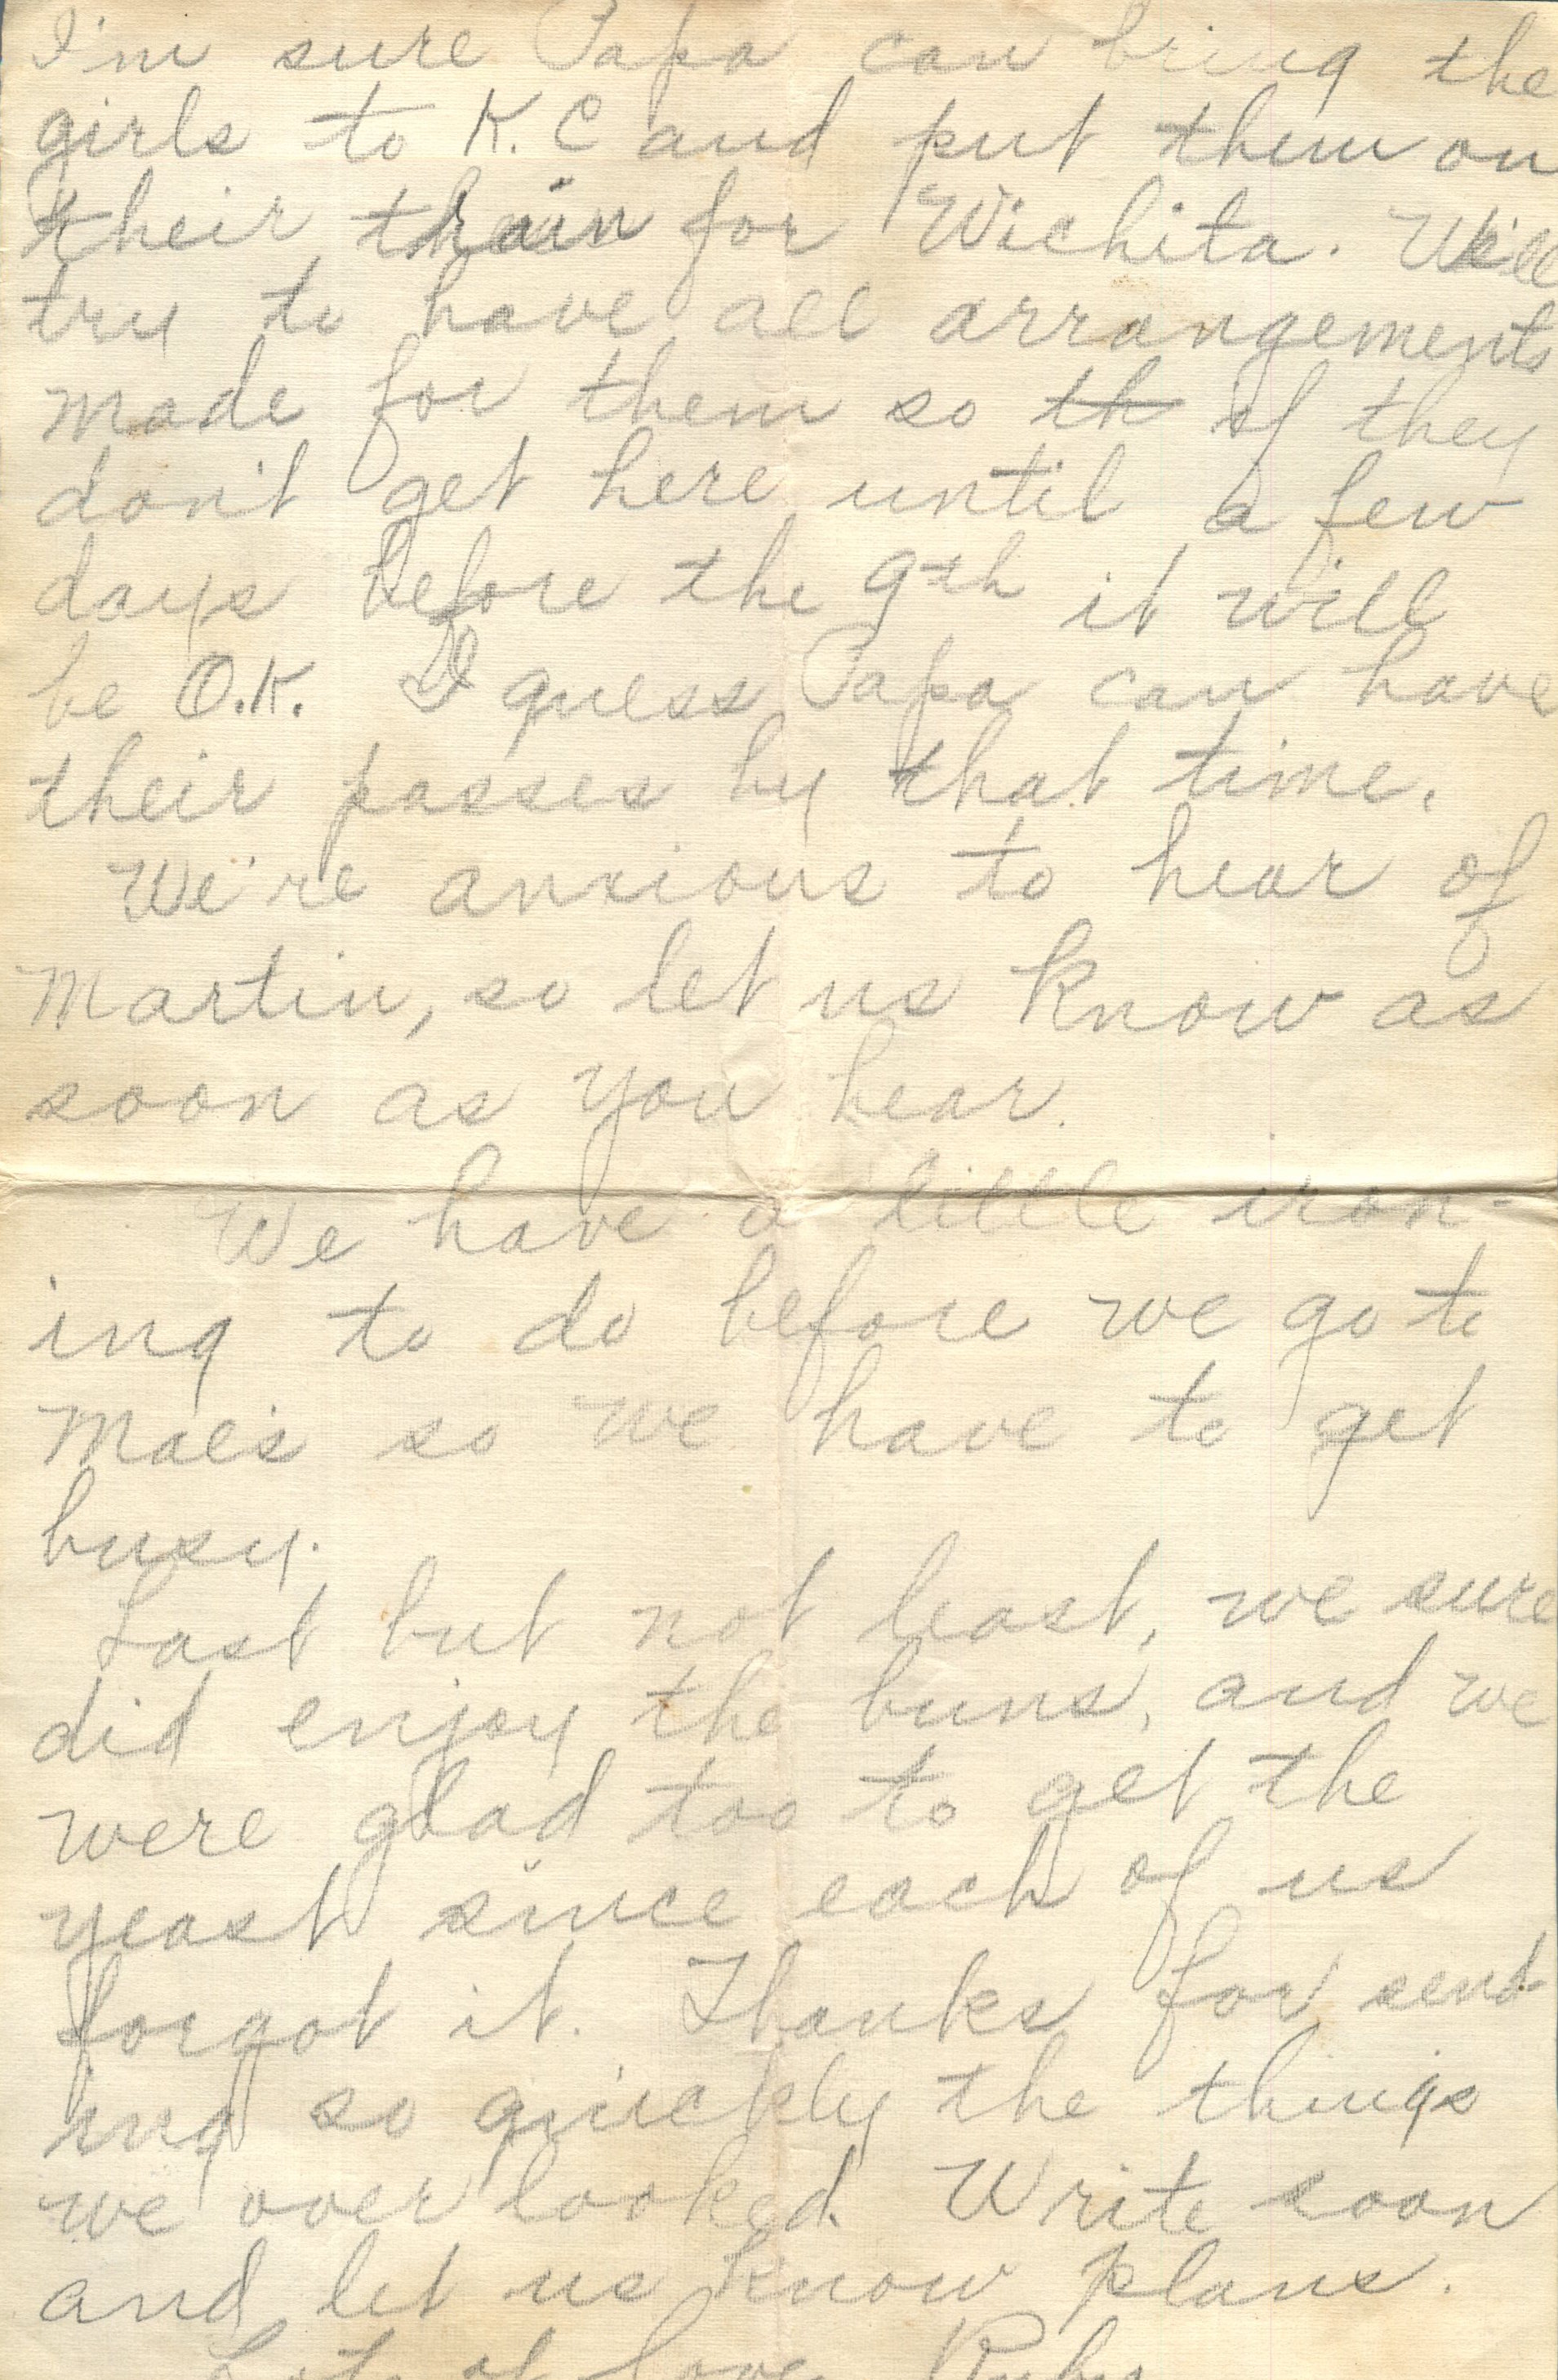 I'm sure Papa can bring the
girls to K. C and put them on
their train for Wichita. We'll
try to have all arrangements
made for them so th if they
don't get here until a few
days before the 9th it will
be O.K. I guess Papa can have
their passes by that time.
We're anxious to hear of
Martin, so let us know as
soon as you hear.
We have a little iron-
ing to do before we go to
Mae's so we have to get
busy.
Last but not least, we sure
did enjoy the buns, and we
were glad too to get the
yeast since each of us
forgot it. Thanks for send-
ing so quickly the things
we over looked. Write soon
and let us know plans.
Lots of love, Ruby